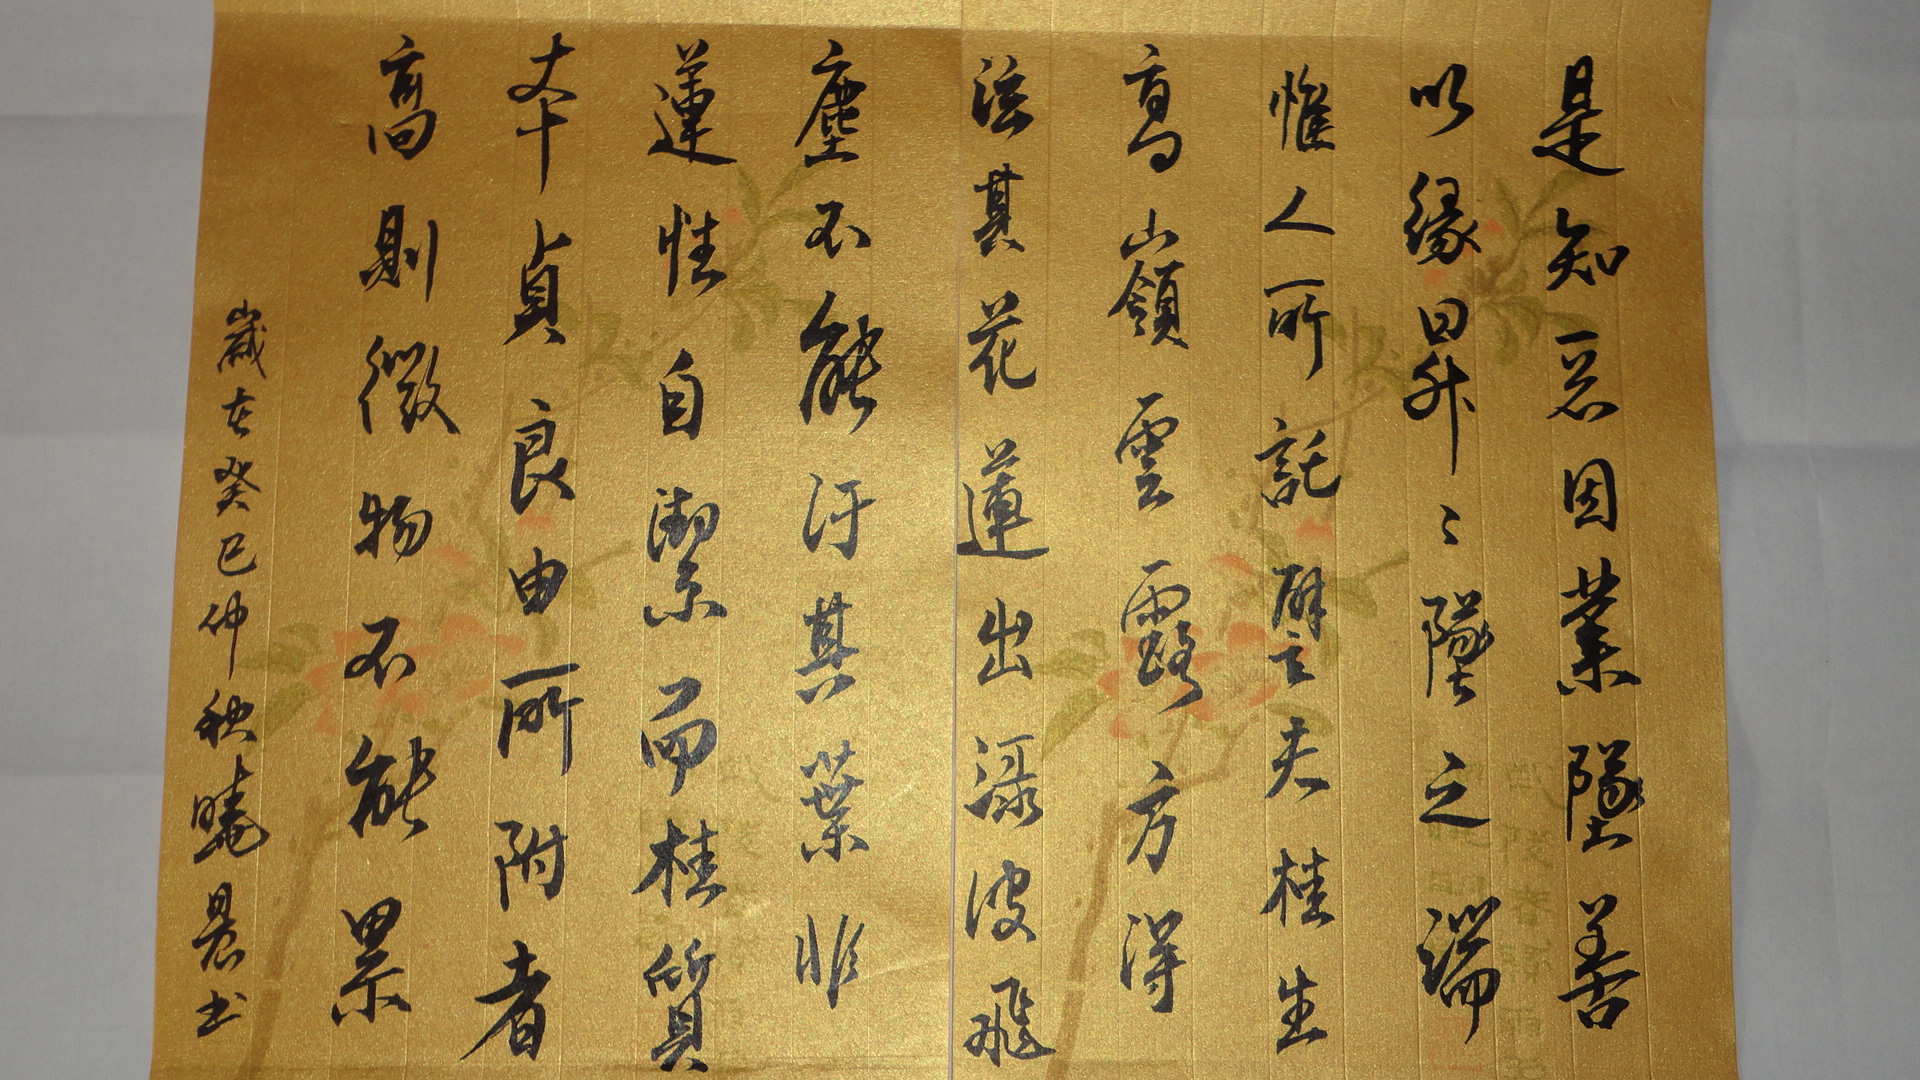 是知惡因業墜善
以緣昇昇〻墜之端
惟人所託譬之夫桂生
高嶺雲露方得
泫其花蓮出淥波飛
塵不能汙其葉非
蓮性自潔而桂質
本貞良由所附者
高則微物不能累
歲在癸巳仲秋曉晨書